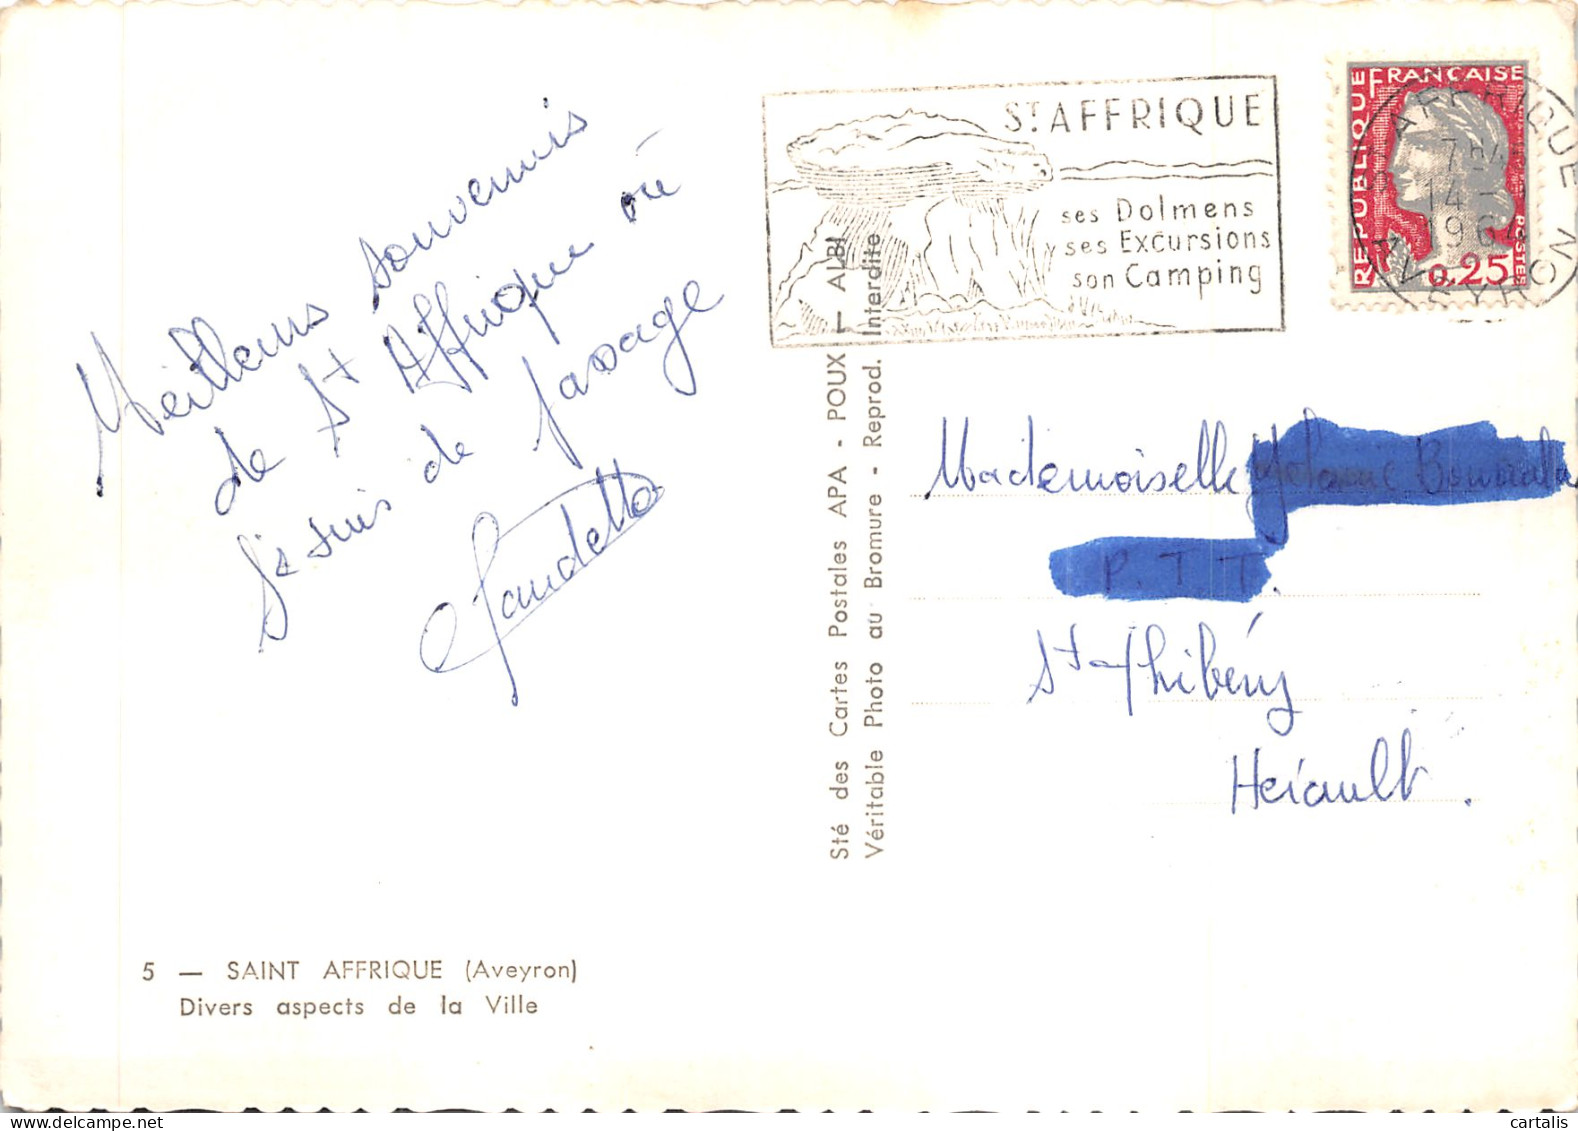 Meilleurs souvenirs
de St Affrique où
je suis de passage
Claudette
5 — SAINT AFFRIQUE (Aveyron)
Divers aspects de la Ville
Sté des Cartes Postales APA - POUX - ALBI
Véritable Photo au Bromure - Reprod. Interdite
ST AFFRIQUE
ses Dolmens
ses Excursions
son Camping
REPUBLIQUE FRANÇAISE
0,25
POSTES
AFFRIQUE
14 -
1964
AVEYRON
Mademoiselle
P.T.T.
St Thibéry
Hérault.
cartalis